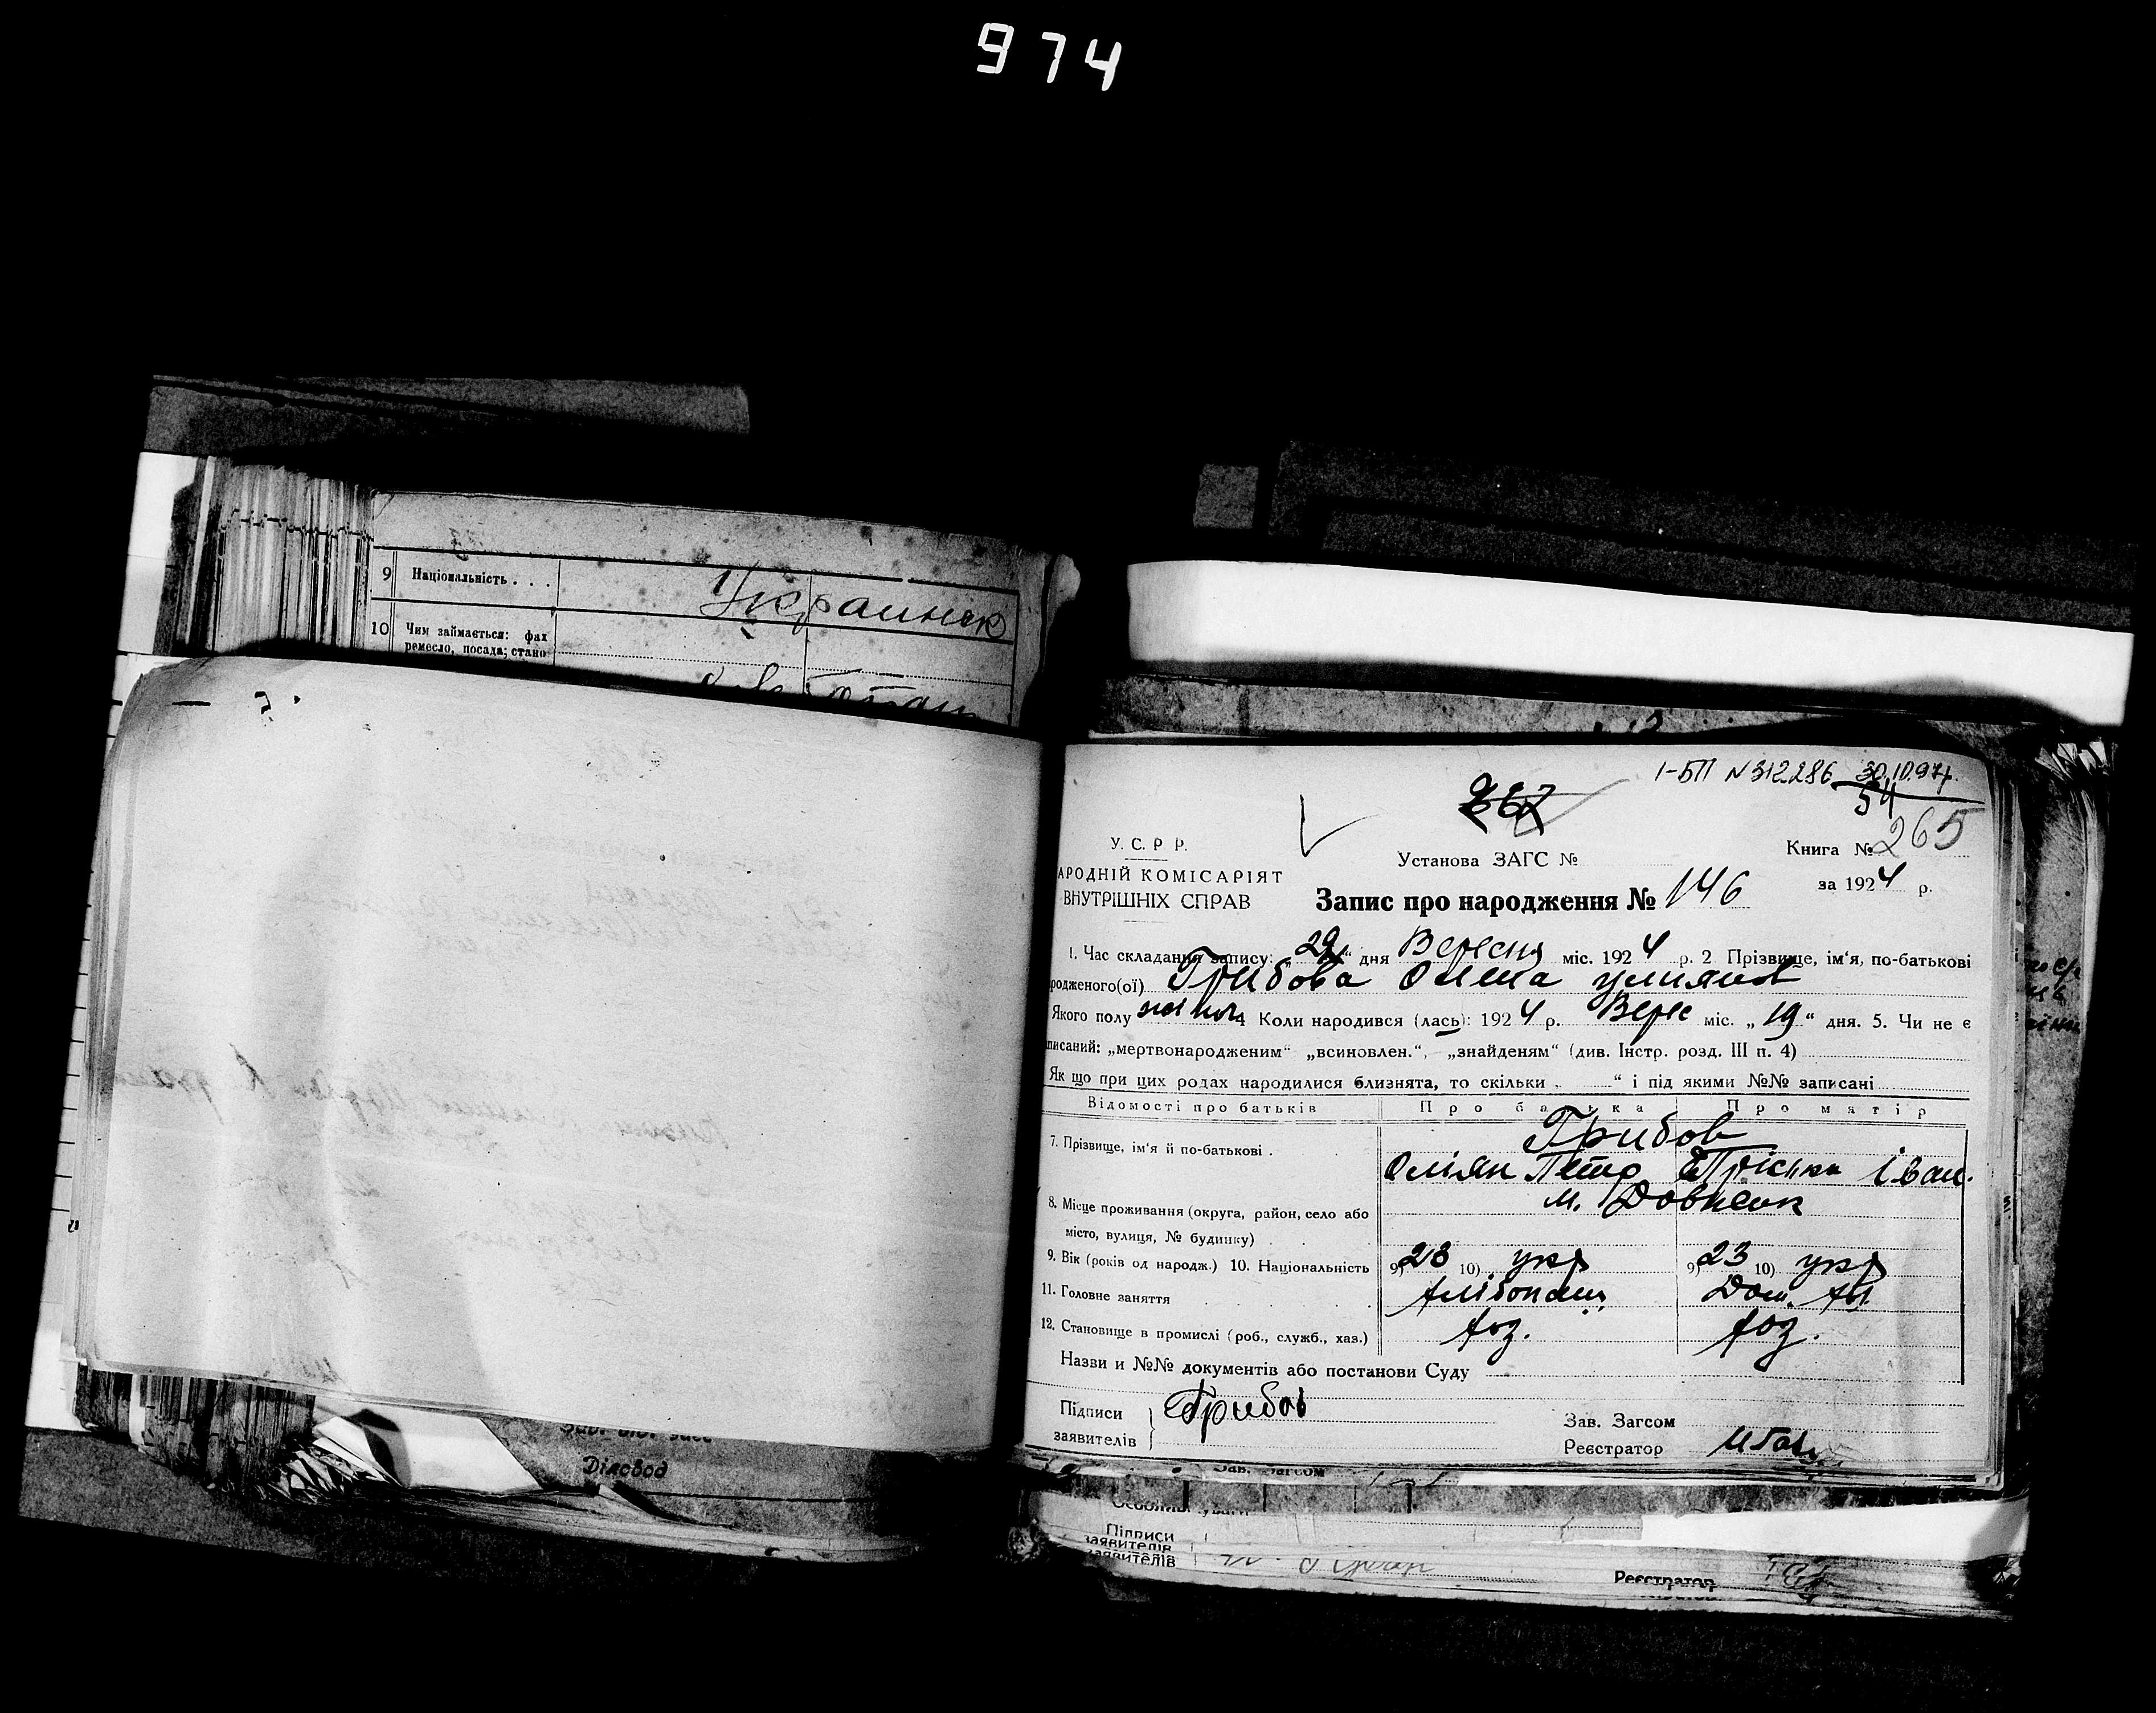 974
9 Національність . . .
Украинск
10 Чим займається: фах
ремесло, посада; стано
1-БП N312286 30.10.97г.
54
267
265
У. С. Р Р.
Установа ЗАГС №
Книга №
АРОДНІЙ КОМІСАРІЯТ
за 1924 р.
ВНУТРІШНІХ СПРАВ
Запис про народження № 146
1. Час складання запису: „29“ дня Вересня міс. 1924 р. 2 Прізвище, ім'я, по-батькові
родженого(ої) Грибова
Якого полу 4 Коли народився (лась): 1924 р. Верес міс. „19“ дня. 5. Чи не є
писаний: „мертвонародженим“ „всиновлен.“, „знайденям“ (див. Інстр. розд. III п. 4)
Як що при цих родах народилися близнята, то скільки „ “ і під якими №№ записані
Відомості про батьків Про батька Про матір
7. Прізвище, ім'я й по-батькові .
Грибов
Оміян Петр Іван.
8. Місце проживання (округа, район, село або
м.
місто, вулиця, № будинку) .
9. Вік (років од народж.) 10. Національність 9) 28 10) укр 9) 23 10) укр
11. Головне заняття Дом.
12. Становище в промислі (роб., служб., хаз.) хоз. хоз.
Назви и №№ документів або постанови Суду
Підписи
заявителів
Грибов
Зав. Загсом
Реєстратор
Діловод
Зав. Загсом
Підписи
заявителів
заявителів
Реєстратор